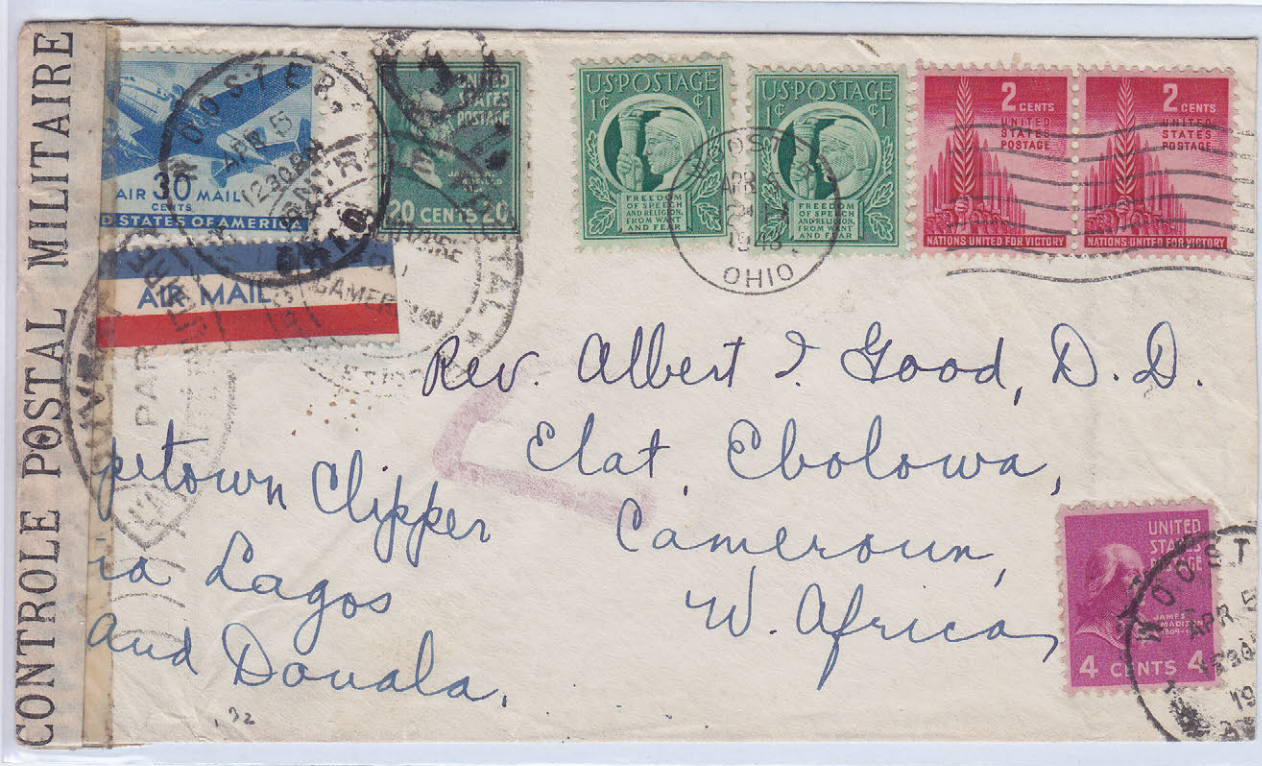 CONTROLE POSTAL MILITAIRE
30
AIR MAIL
CENTS
D STATES OF AMERICA
AIR MAIL
STATES
POSTAGE
20 CENTS 20
U.S. POSTAGE
1¢ ¢1
FREEDOM
OF SPEECH
AND RELIGION,
FROM WANT
AND FEAR
U.S. POSTAGE
1¢ ¢1
FREEDOM
OF SPEECH
AND RELIGION,
FROM WANT
AND FEAR
2 CENTS
UNITED
STATES
POSTAGE
NATIONS UNITED FOR VICTORY
2 CENTS
UNITED
STATES
POSTAGE
NATIONS UNITED FOR VICTORY
WOOSTER
APR 5
1230PM
WOOST
APR 5
1943
OHIO
POSTAL
Rev. Albert I. Good, D. D.
Elat, Ebolowa,
Cameroun,
W. Africa,
petown Clipper
ia Lagos
and Douala.
PAR
UNITED
STATES
POSTAGE
JAMES
MADISON
4 CENTS 4
WOOST
APR 5
1230
19